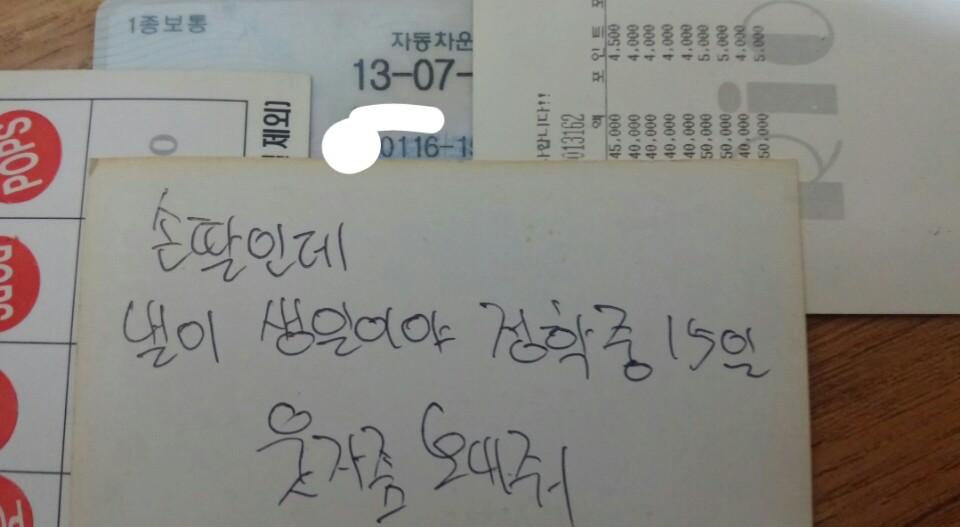 1종보통
자동차운
13-07-
0116-19
제외)
POPS
POPS
손딸인데
낼이 생일이야 정학중 15일
웃자좀 보내줘
사합니다!!
013162
액 포인트
45,000 4,500
40,000 4,000
40,000 4,000
40,000 4,000
50,000 5,000
50,000 5,000
40,000 4,000
50,000 5,000
Rio